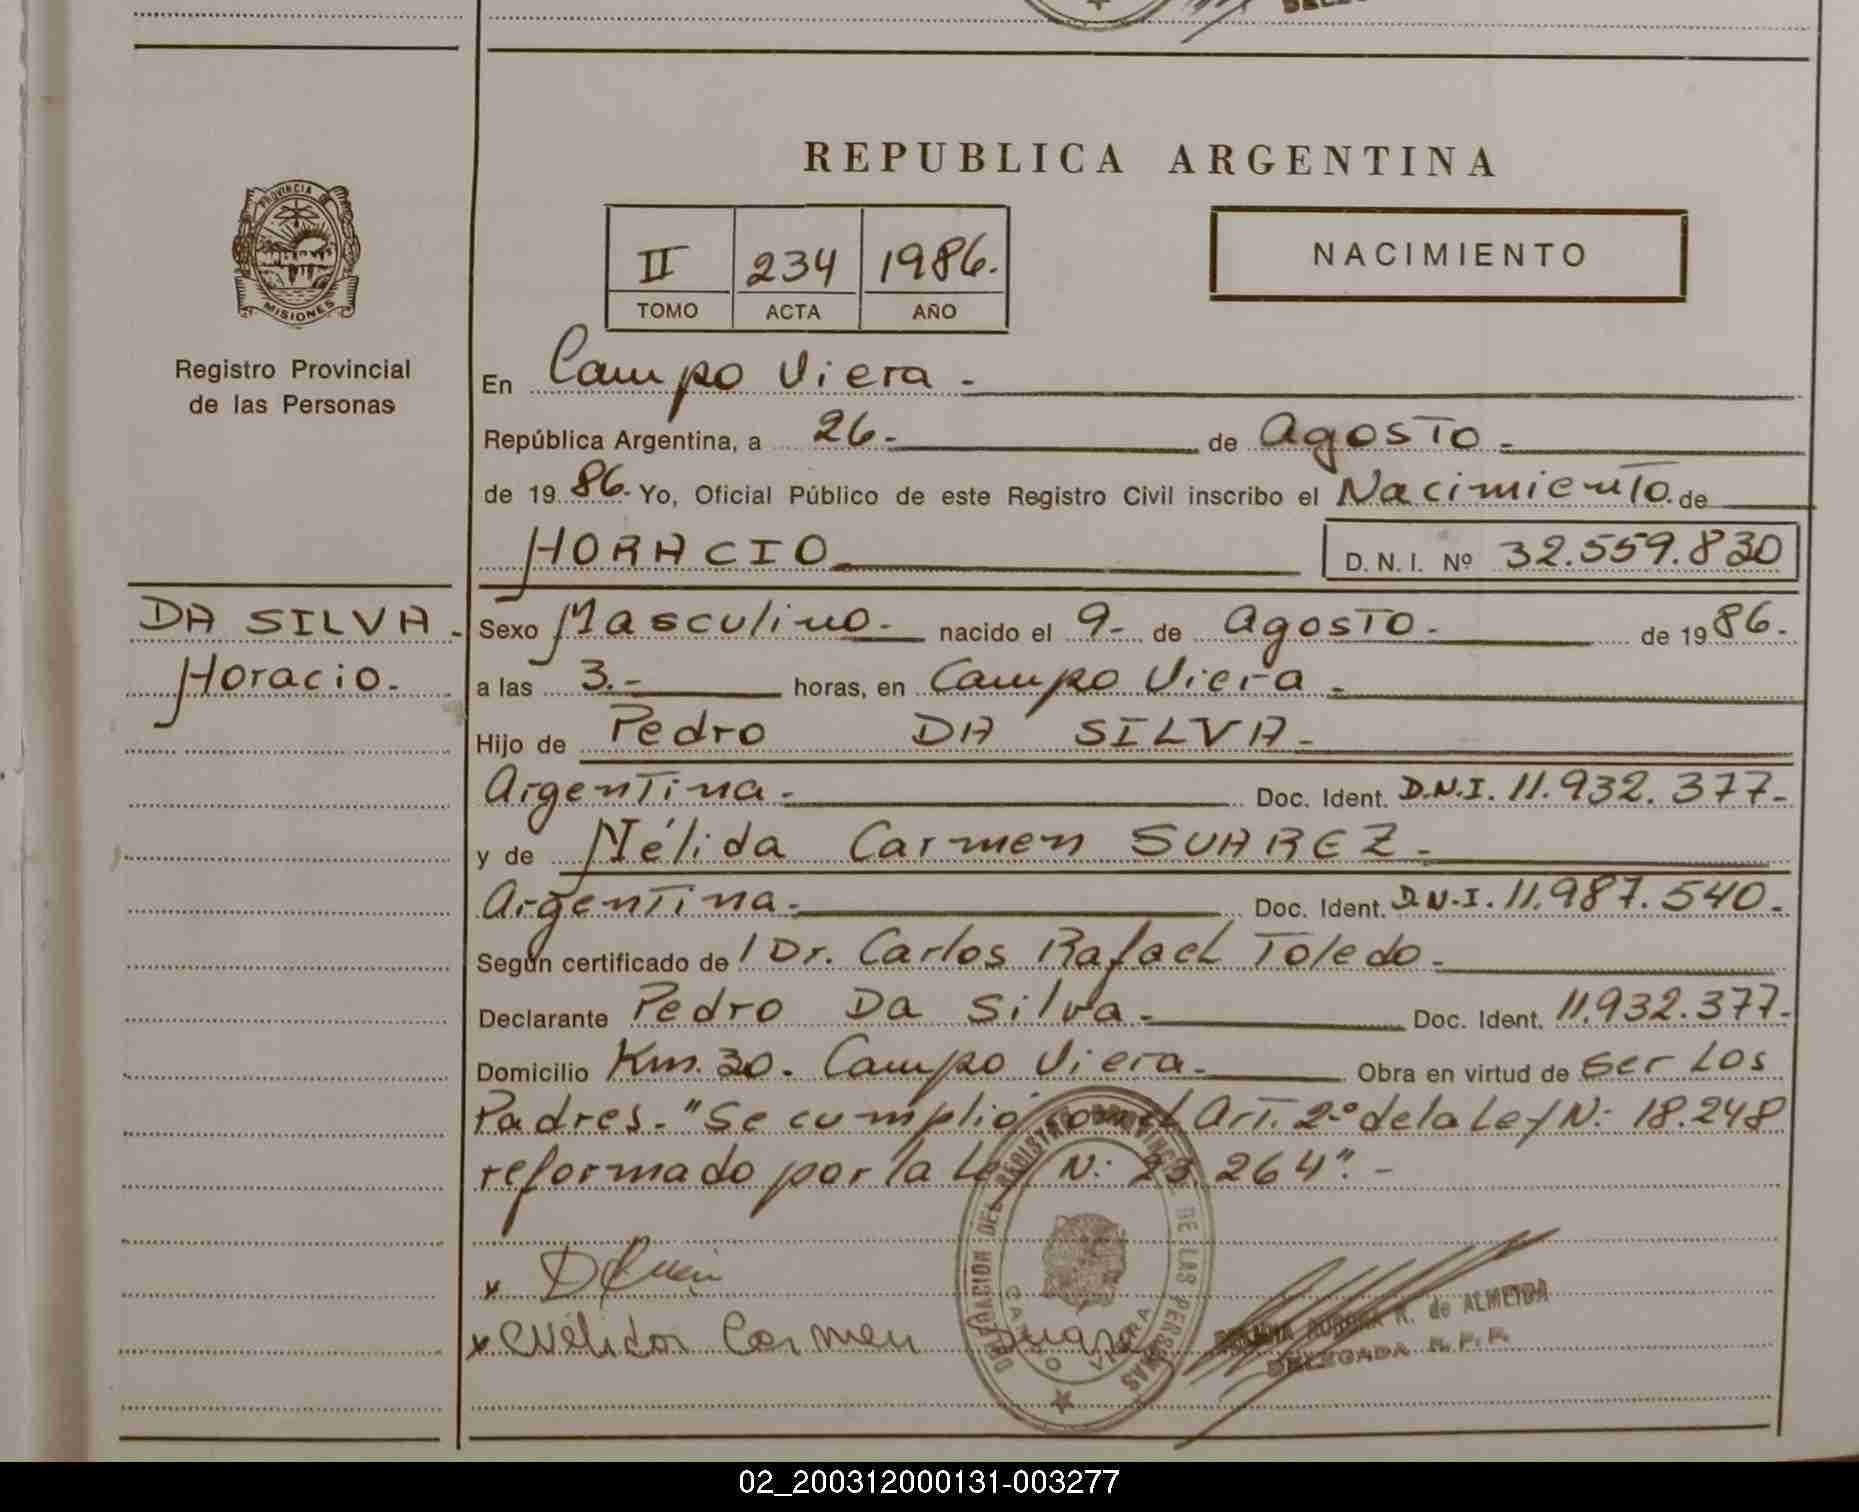 REPUBLICA ARGENTINA
PROVINCIA DE MISIONES
II 234 1986.
TOMO ACTA AÑO
NACIMIENTO
Registro Provincial
de las Personas
En Campo Viera -
República Argentina, a 26.- de Agosto -
de 1986. Yo, Oficial Público de este Registro Civil inscribo el Nacimiento. de
HORACIO D. N. I. Nº 32.559.830
DA SILVA -
Horacio. -
Sexo Masculino. - nacido el 9- de Agosto. - de 1986. -
a las 3. - horas, en Campo Viera -
Hijo de Pedro DA SILVA -
Argentina. - Doc. Ident. D.N.I. 11.932.377-
y de Nélida Carmen SUAREZ -
Argentina. - Doc. Ident. D.N.I. 11.987.540. -
Según certificado de / Dr. Carlos Rafael Toledo. -
Declarante Pedro Da Silva. - Doc. Ident. 11.932.377-
Domicilio Km. 30. Campo Viera. - Obra en virtud de ser los
Padres. - "Se cumplió con el Art. 2º de la Ley N: 18.248
reformado por la Ley N: 23.264". -
x
x Nélida Carmen Suarez
DELEGACION DEL REGISTRO PROVINCIAL DE LAS PERSONAS
CAMPO VIERA
AURORA R. de ALMEIDA
DELEGADA R. P. P.
02_200312000131-003277